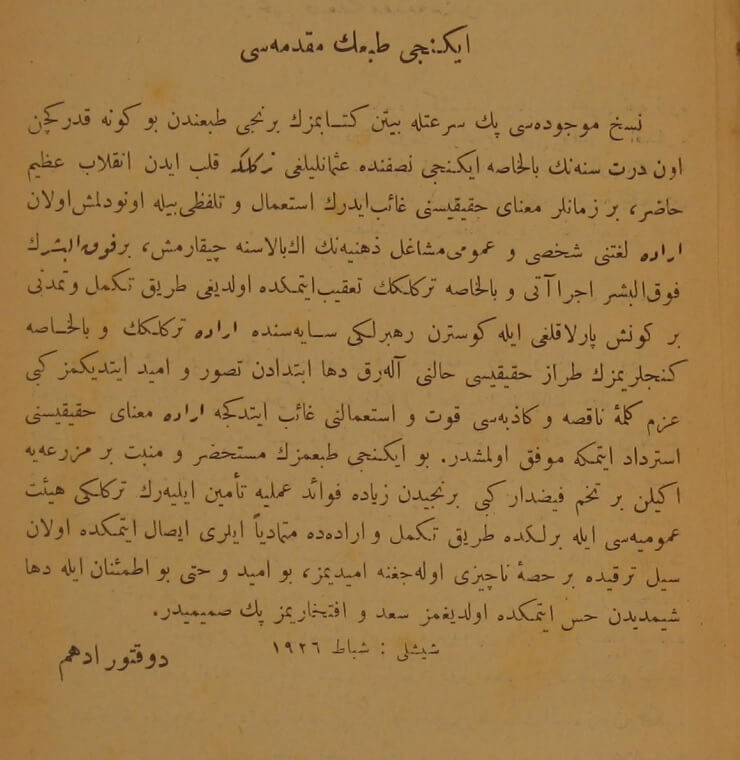 ایكنجی طبعك مقدمه‌سی
نسخ موجوده‌سی پك سرعتله بیتن كتـابمزك برنجی طبعندن بو كونه قدر كچن
اون درت سنه‌نك بالخاصه ایكنجی نصفنده عثمانلیلغی تركلكه قلب ایدن انقلاب عظیم
حاضر، بر زمانلر معنای حقیقیسنی غائب‌ایدرك استعمال و تلفظی‌بیله اونودلمش‌اولان
اراده لغتنی شخصی و عمومی‌مشاغل ذهنیه‌نك اك‌بالاسنه چیقارمش، برفوق‌البشرك
فوق‌البشر اجراآتی و بالخاصه تركلكك تعقیب‌ایتمكده اولدیغی طریق تكمل وتمدنی
بر كونش پارلاقلغی ایله كوسترن رهبرلكی سـایه‌سنده اراده تركلكك و بالخـاصه
كنجلریمزك طراز حقیقیسی حالنی آله‌رق دها ابتدادن تصور و امید ایتدیكمز كبی
عزم كلمۀ ناقصه و كاذبه‌سی قوت و استعمالنی غائب ایتدكجه اراده معنای حقیقیسنی
استرداد ایتمكه موفق اولمشدر. بو ایكنجی طبعمزك مستحضر و منبت بر مزرعه‌یه
اكیلن بر تخم فیضدار كبی برنجیدن زیاده فوائد عملیه تأمین ایلیه‌رك تركلكی هیئت
عمومیه‌سی ایله برلكده طریق تكمل و اراده‌ده متمادیاً ایلری ایصال ایتمكده اولان
سیل ترقیده بر حصۀ ناچیزی اوله‌جغنه امیدیمز، بو امید و حتی بو اطمئنان ایله دها
شیمدیدن حس ایتمكده اولدیغمز سعد و افتخاریمز پك صمیمیدر.
شیشلی : شباط ۱۹۲٦
دوقتور ادهم